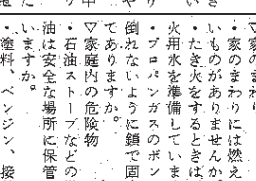 ▽家のまわり
・家のまわりには燃え
いものがありませんか。
・たき火をするときは、
火用水を準備していま
・プロパンガスのボン
倒れないように鎖で固
てありますか。
▽家庭内の危険物
・石油ストーブなどの
油は安全な場所に保管
いますか。
・塗料、ベンジン、接